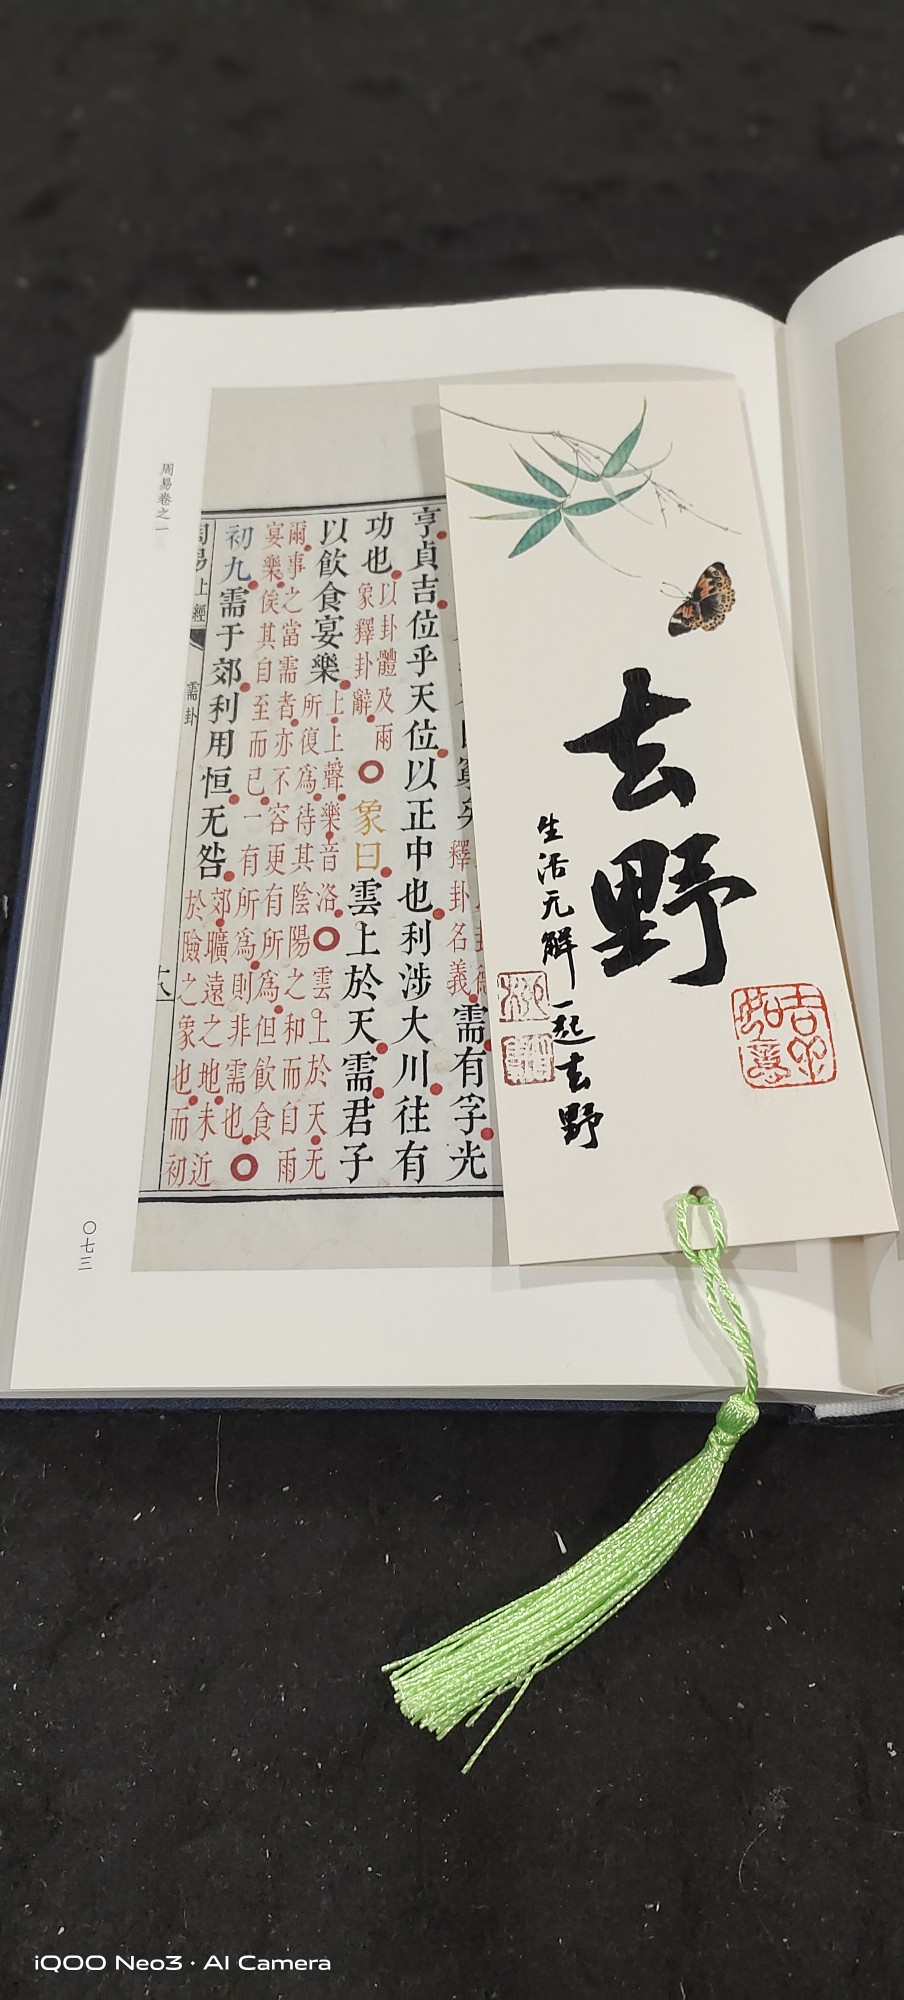 去野
生活无解一起去野
矣
釋卦名義
需有孚光
亨貞吉位乎天位以正中也利涉大川往有
功也
以卦體及兩
象釋卦辭
象曰雲上於天需君子
以飲食宴樂
上上聲樂音洛○雲上於天无
所復為待其陰陽之和而自雨
爾事之當需者亦不容更有所為但飲食
宴樂俟其自至而已一有所為則非需也○
初九需于郊利用恒无咎
郊曠遠之地未近
於險之象也而初
周易上經
需卦
周易卷之一
〇七三
iQOO Neo3 · AI Camera